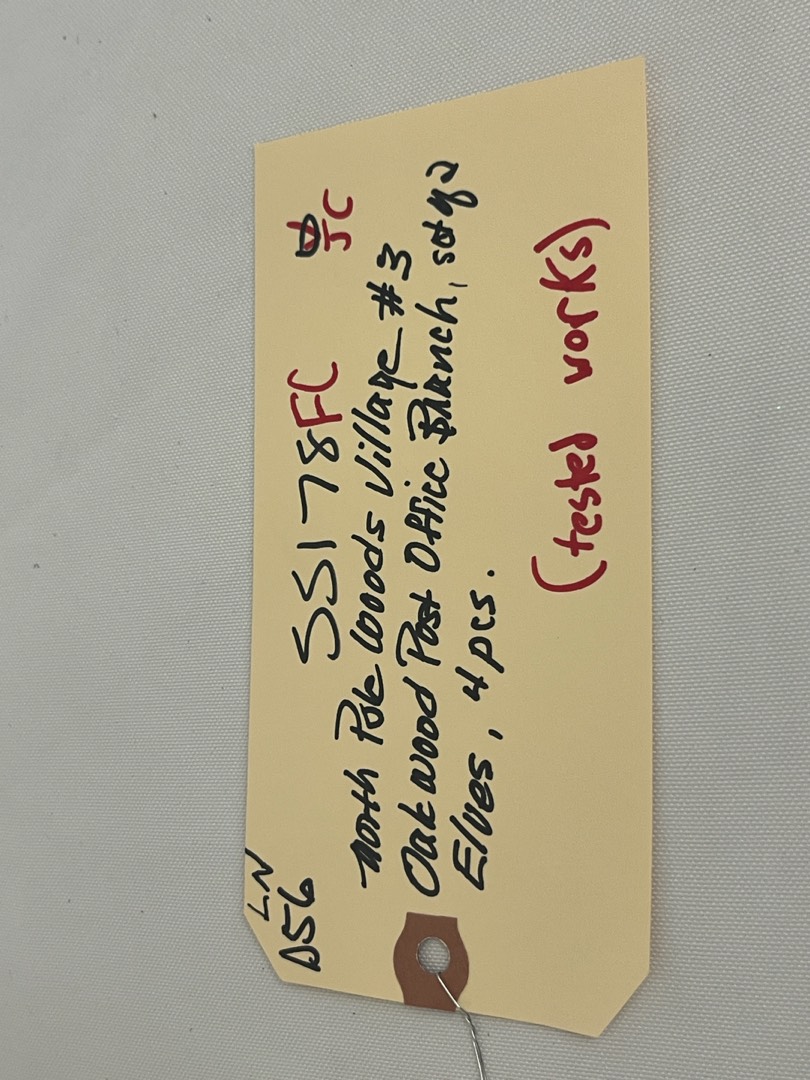 LN
D56
SS178FC
JC
North Pole Woods Village #3
Oakwood Post Office Branch, set of 2
Elves, 4 pcs.
(tested works)